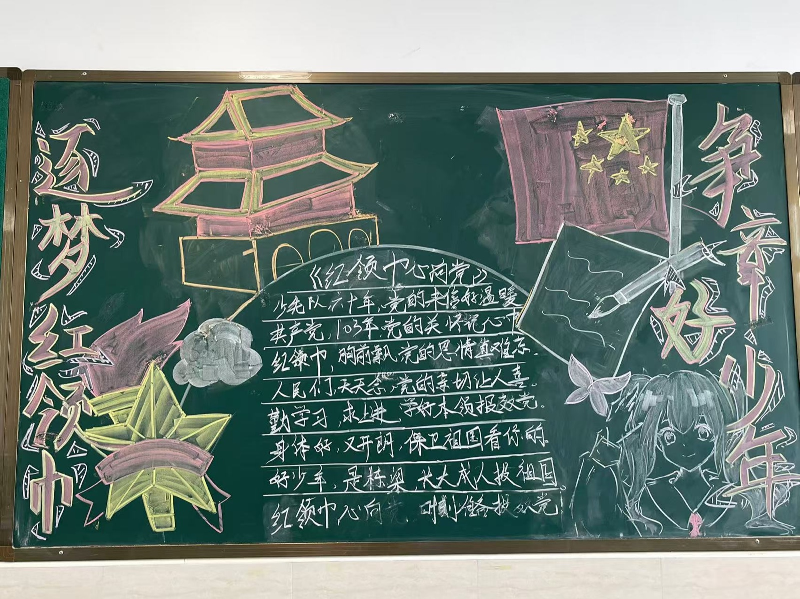 逐梦红领巾
《红领巾心向党》
少先队六十年,党的关怀好温暖
共产党,103年,党的关怀记心中
红领巾,胸前飘,党的恩情真难忘.
人民们天天念,党的亲切让人喜.
勤学习,求上进,学好本领报效党.
身体好,又开朗,保卫祖国看你的.
好少年,是栋梁,长大成人报祖国.
红领巾心向党,时刻准备报效党
争章好少年